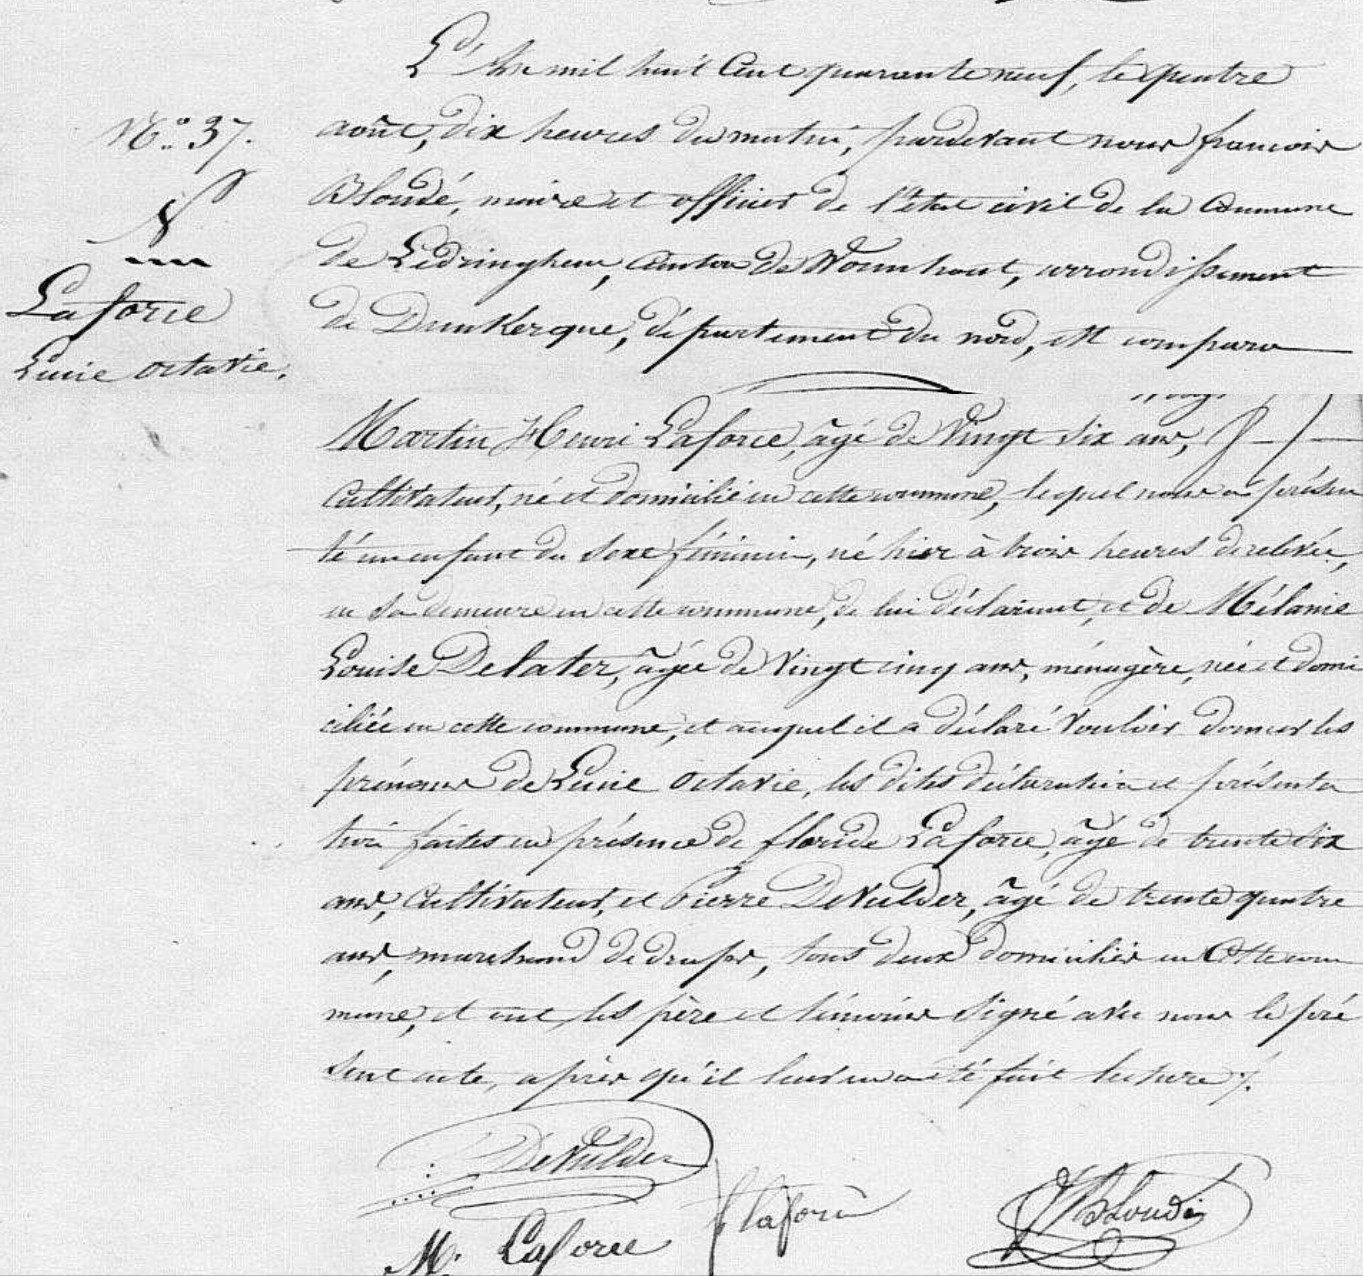 L'An mil huit Cent quarante neuf, le quatre
N.° 37.
août, dix heures du matin, pardevant nous françois
Blondé, maire et officier de l'état civil de la Commune
de Ledringhem, Canton de Wormhout, arrondissement
Laforce
de Dunkerque, département du nord, est comparu
Lucie Octavie.
Martin Henri Laforce, âgé de Vingt six ans,
Cultivateur, né et domicilié en cette commune, lequel nous a présen
té un enfant du sexe féminin, né hier à trois heures de relevée,
en sa demeure en cette commune, de lui déclarant, et de Mélanie
Louise Delater, âgée de Vingt cinq ans, ménagère, née et domi
ciliée en cette commune, et auquel il a déclaré Vouloir donner les
prénoms de Lucie Octavie, les dites déclaration et présenta
tion faites en présence de floride Laforce, âgé de trente six
ans, Cultivateur, et Pierre DeVulder, âgé de trente quatre
ans, marchand de draps, tous deux domiciliés en Cette com
mune, et ont les père et témoins signé avec nous le pré
sent acte, après qu'il leur en a été fait lecture ./.
DeVulder
f laforce
Blondé
M. Laforce